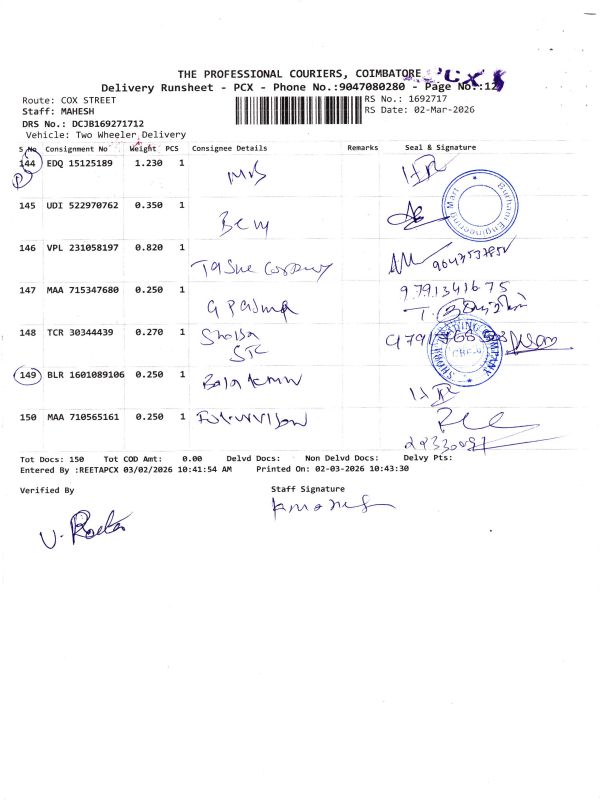 THE PROFESSIONAL COURIERS, COIMBATORE
PCX
Delivery Runsheet - PCX - Phone No.:9047080280 - Page No.:12
Route: COX STREET
RS No.: 1692717
Staff: MAHESH
RS Date: 02-Mar-2026
DRS No.: DCJB169271712
Vehicle: Two Wheeler Delivery
S No Consignment No Weight PCS Consignee Details Remarks Seal & Signature
144 EDQ 15125189 1.230 1
P
145 UDI 522970762 0.350 1
Burhani Engineering Mart
146 VPL 231058197 0.820 1
147 MAA 715347680 0.250 1
9791341675
148 TCR 30444439 0.270 1
149 BLR 1601089106 0.250 1
150 MAA 710565161 0.250 1
Tot Docs: 150 Tot COD Amt: 0.00 Delvd Docs: Non Delvd Docs: Delvy Pts:
Entered By :REETAPCX 03/02/2026 10:41:54 AM Printed On: 02-03-2026 10:43:30
Verified By Staff Signature